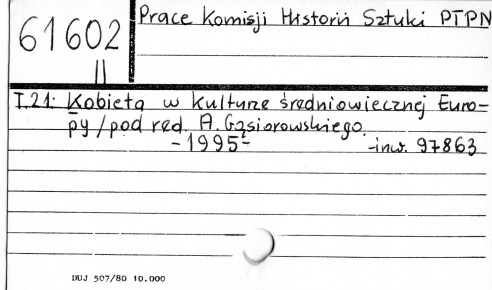 61602
II
Prace Komisji Historii Sztuki PTPN
T.21: Kobieta w kulturze średniowiecznej Euro-
py / pod red. A. Gąsiorowskiego.
-1995-
-inw. 97863
DUJ 507/80 10.000